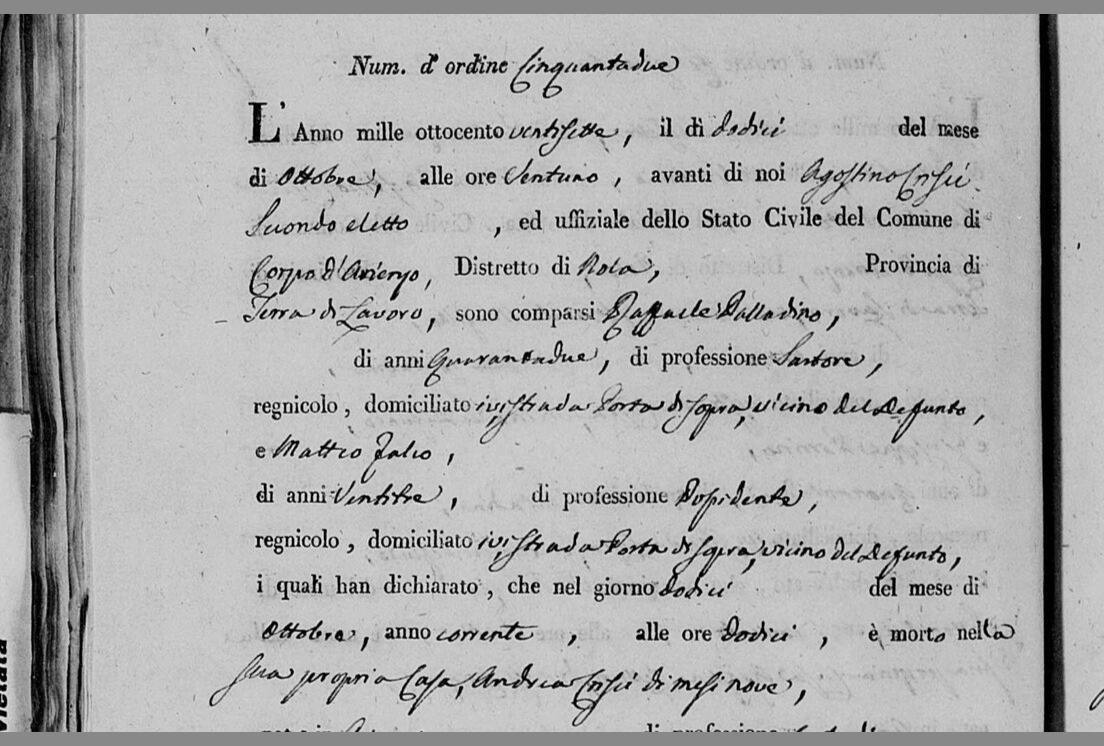 Num. d' ordine Cinquantadue
L' Anno mille ottocento ventisette, il dì dodici del mese
di Ottobre, alle ore Ventuno, avanti di noi Agostino Crisci
Secondo eletto, ed uffiziale dello Stato Civile del Comune di
Corpo d'Arienzo, Distretto di Nola, Provincia di
Terra di Lavoro, sono comparsi Raffaele Palladino,
di anni Quarantadue, di professione Sartore,
regnicolo, domiciliato ivi, strada Porta di sopra, vicino del Defunto,
e Matteo Falco,
di anni Ventitre, di professione Possidente,
regnicolo, domiciliato ivi, strada Porta di sopra, vicino del Defunto,
i quali han dichiarato, che nel giorno dodici del mese di
Ottobre, anno corrente, alle ore Dodici, è morto nella
sua propria Casa, Andrea Crisci di mesi nove,
di professione
vietata